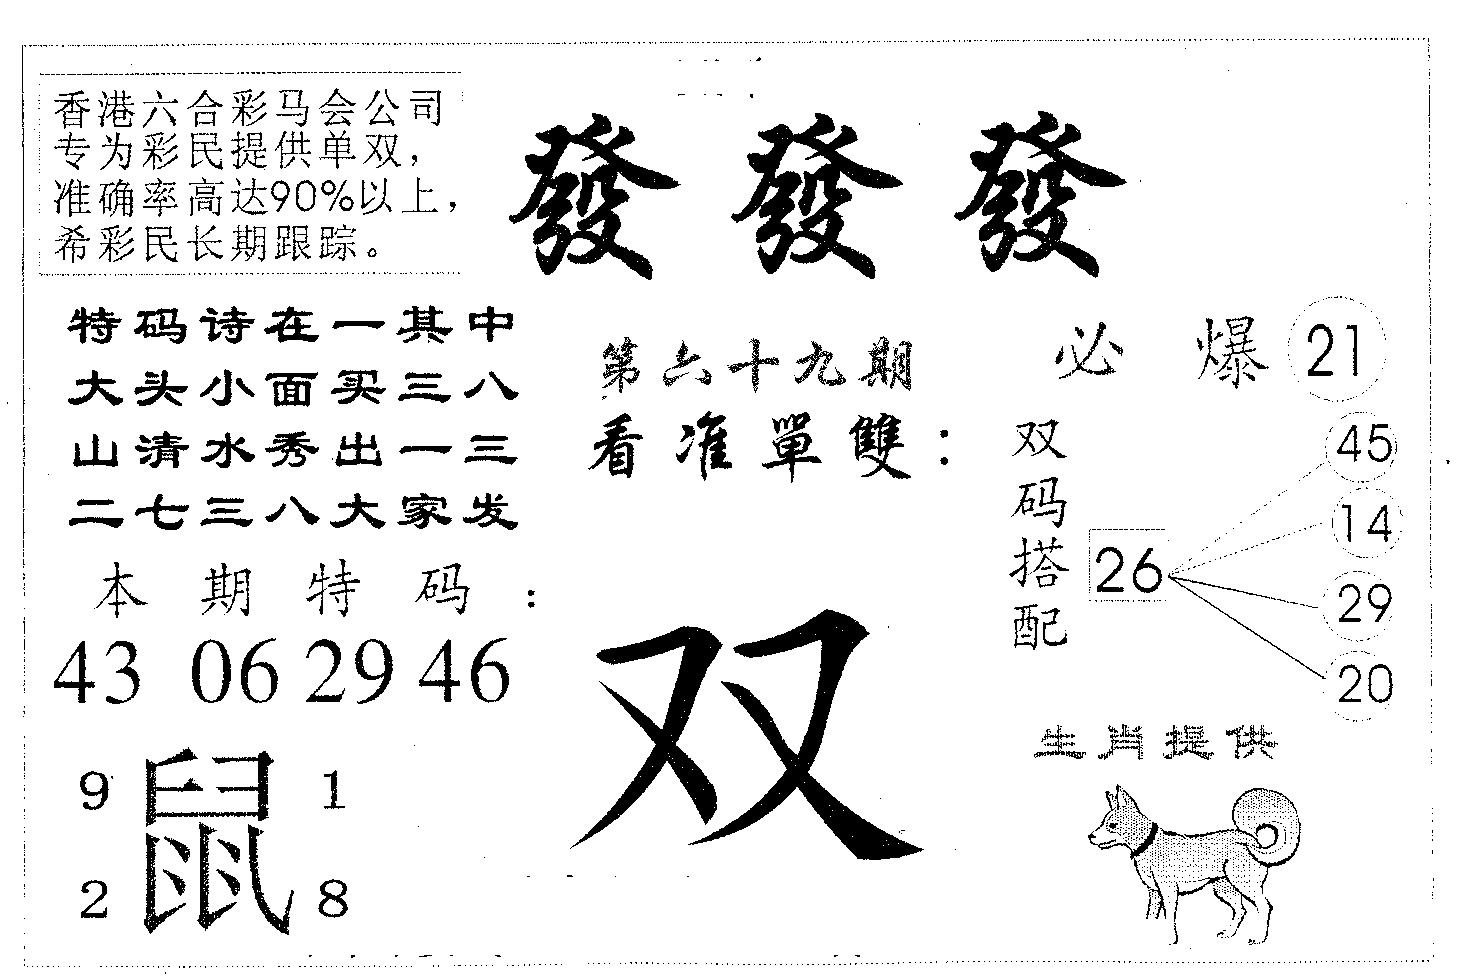 香港六合彩马会公司
专为彩民提供单双，
准确率高达90%以上，
希彩民长期跟踪。
發發發
特码诗在一其中
大头小面买三八
山清水秀出一三
二七三八大家发
第六十九期
看准單雙：
必爆 21
双码搭配
26
45
14
29
20
本期特码：
43 06 29 46
双
9 鼠 1
2 8
生肖提供